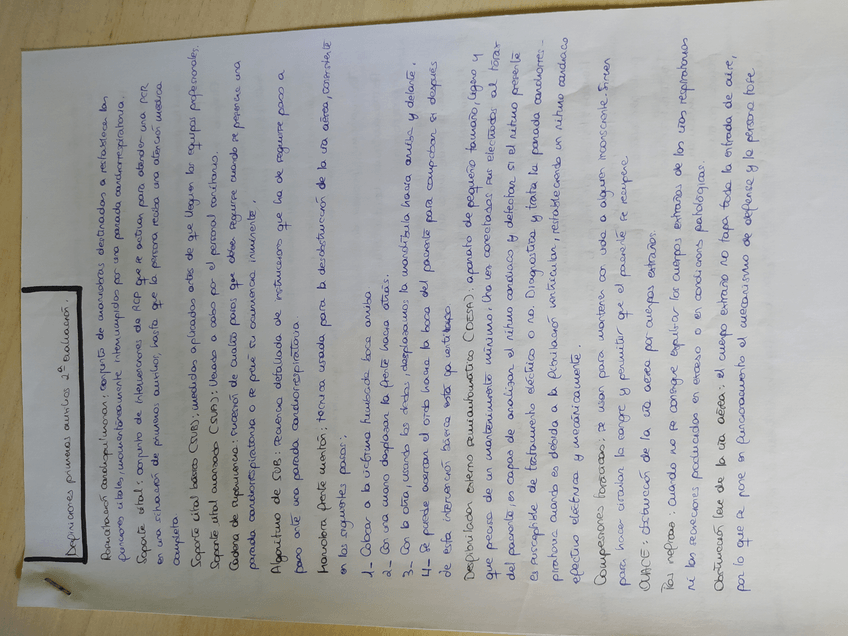 Definiciones primeros auxilios 2ª Evaluación.
Reanimación cardiopulmonar: conjunto de maniobras destinadas a restablecer las
funciones vitales, momentáneamente interrumpidas por una parada cardiorrespiratoria.
Soporte vital: conjunto de intervenciones de RCP que se activan para atender una PCR
en una situación de primeros auxilios, hasta que la persona reciba una atención médica
completa.
Soporte vital básico (SVB): medidas aplicadas antes de que lleguen los equipos profesionales.
Soporte vital avanzado (SVA): llevado a cabo por el personal sanitario.
Cadena de supervivencia: sucesión de cuatro pasos que deben seguirse cuando se presencia una
parada cardiorrespiratoria o se prevé su ocurrencia inminente.
Algoritmo de SVB: secuencia detallada de instrucciones que ha de seguirse paso a
paso ante una parada cardiorrespiratoria.
Maniobra frente mentón: técnica usada para la desobstrucción de la vía aérea, consistente
en los siguientes pasos:
1- Colocar a la víctima tumbada boca arriba.
2- Con una mano desplazar la frente hacia atrás.
3- Con la otra, usando los dedos, desplazamos la mandíbula hacia arriba y delante.
4- Se puede acercar el oído hacia la boca del paciente para comprobar si después
de esta intervención básica está ya restablecida.
Desfibrilador externo semiautomático (DESA): aparato de pequeño tamaño, ligero y
que precisa de un mantenimiento mínimo. Una vez conectados sus electrodos al tórax
del paciente es capaz de analizar el ritmo cardíaco y detectar si el ritmo presente
es susceptible de tratamiento eléctrico o no. Diagnostica y trata la parada cardiorres-
piratoria cuando es debida a la fibrilación ventricular, restableciendo un ritmo cardíaco
efectivo eléctrica y mecánicamente.
Compresiones torácicas: se usan para mantener con vida a alguien inconsciente. Sirven
para hacer circular la sangre y permitir que el paciente se recupere.
OVACE: obstrucción de la vía aérea por cuerpos extraños.
Tos refleja: cuando no se consigue expulsar los cuerpos extraños de las vías respiratorias
ni las secreciones producidas en exceso o en condiciones patológicas.
Obstrucción leve de la vía aérea: el cuerpo extraño no tapa toda la entrada de aire,
por lo que se pone en funcionamiento el mecanismo de defensa y la persona tose.